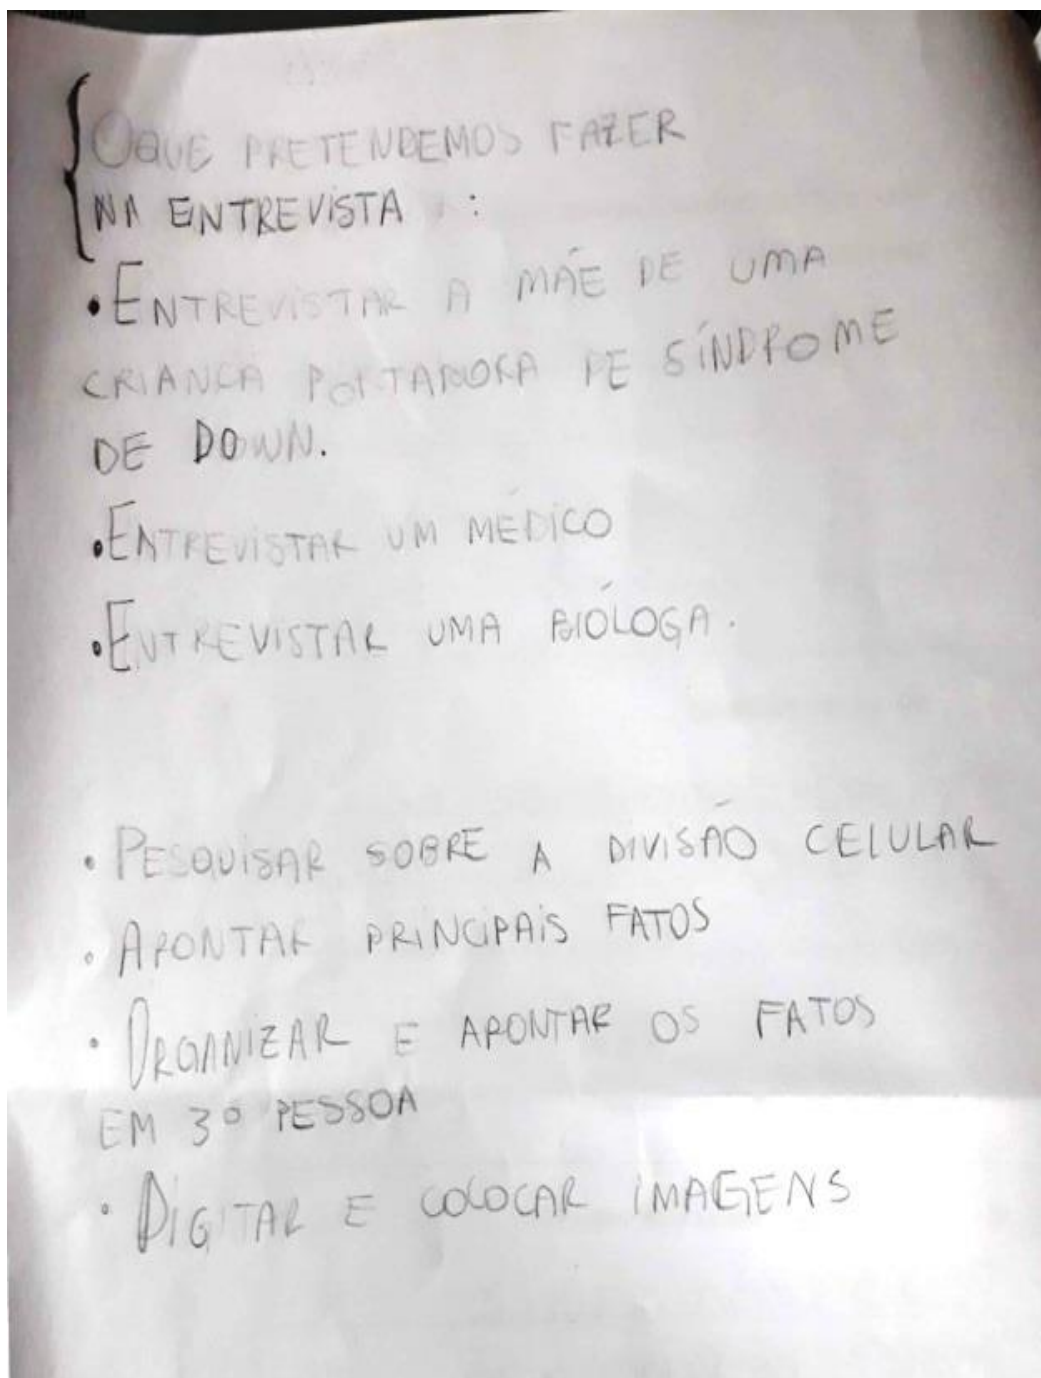 OQUE PRETENDEMOS FAZER
NA ENTREVISTA :
•ENTREVISTAR A MÃE DE UMA
CRIANÇA PORTADORA DE SÍNDROME
DE DOWN.
•ENTREVISTAR UM MÉDICO
•ENTREVISTAR UMA BIÓLOGA.
• PESQUISAR SOBRE A DIVISÃO CELULAR
• APONTAR PRINCIPAIS FATOS
• ORGANIZAR E APONTAR OS FATOS
EM 3º PESSOA
• DIGITAR E COLOCAR IMAGENS